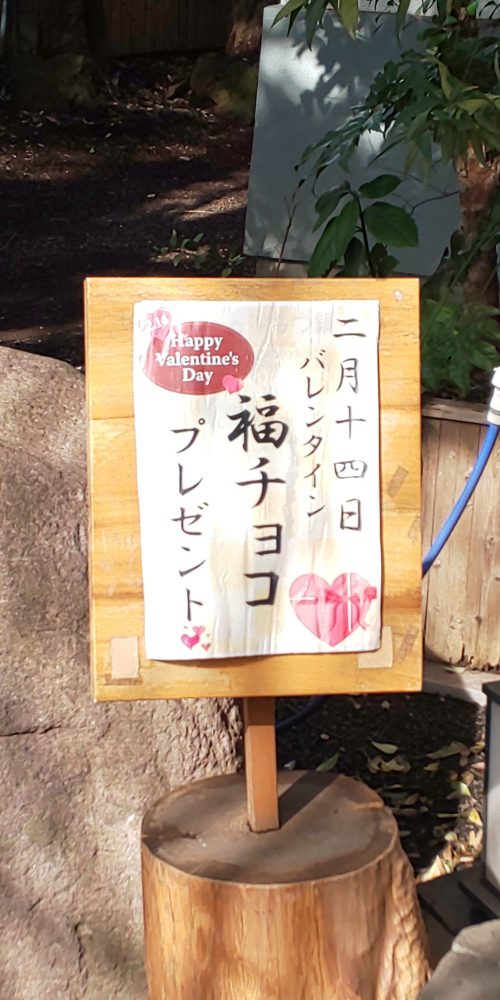 二月十四日
バレンタイン
福チョコ
プレゼント
2.14
Happy
Valentine's
Day